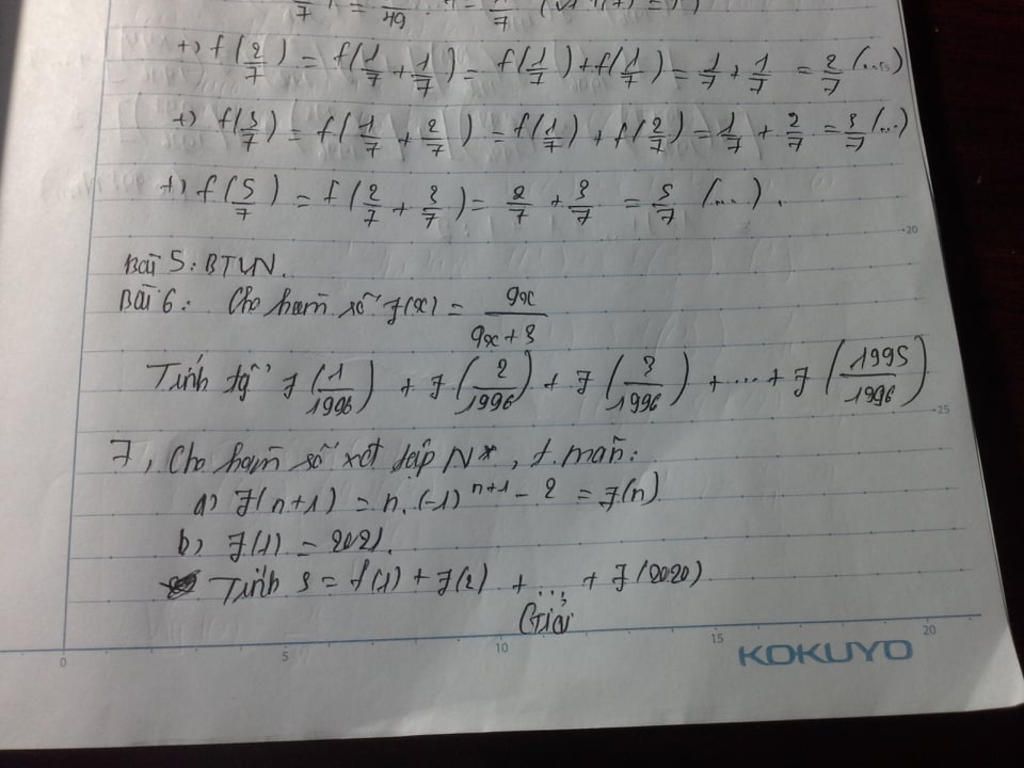 7 = 49 . 7
+) f(2/7) = f(1/7 + 1/7) = f(1/7) + f(1/7) = 1/7 + 1/7 = 2/7 (...)
+) f(3/7) = f(1/7 + 2/7) = f(1/7) + f(2/7) = 1/7 + 2/7 = 3/7 (...)
+) f(5/7) = f(2/7 + 3/7) = 2/7 + 3/7 = 5/7 (...).
20
Bài 5: BTVN.
Bài 6: Cho hàm số f(x) = 9x/(9x+3)
Tính tổ f(1/1996) + f(2/1996) + f(3/1996) + ... + f(1995/1996)
25
7, Cho hàm số xđ tập N*, t.mãn:
a) f(n+1) = n.(-1)^(n+1) - 2 = f(n)
b) f(1) = 2021.
Tính S = f(1) + f(2) + ... + f(2020)
Giải
0 5 10 15 20
KOKUYO